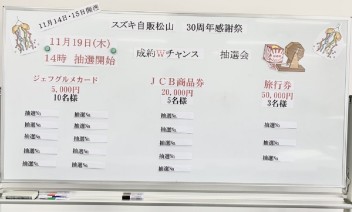 11月14日・15日開催
スズキ自販松山 30周年感謝祭
11月19日(木)
14時 抽選開始
成約Wチャンス 抽選会
ジェフグルメカード
5,000円
10名様
抽選№ 抽選№
抽選№ 抽選№
抽選№ 抽選№
抽選№ 抽選№
抽選№ 抽選№
JCB商品券
20,000円
5名様
抽選№
抽選№
抽選№
抽選№
抽選№
旅行券
50,000円
3名様
抽選№
抽選№
抽選№